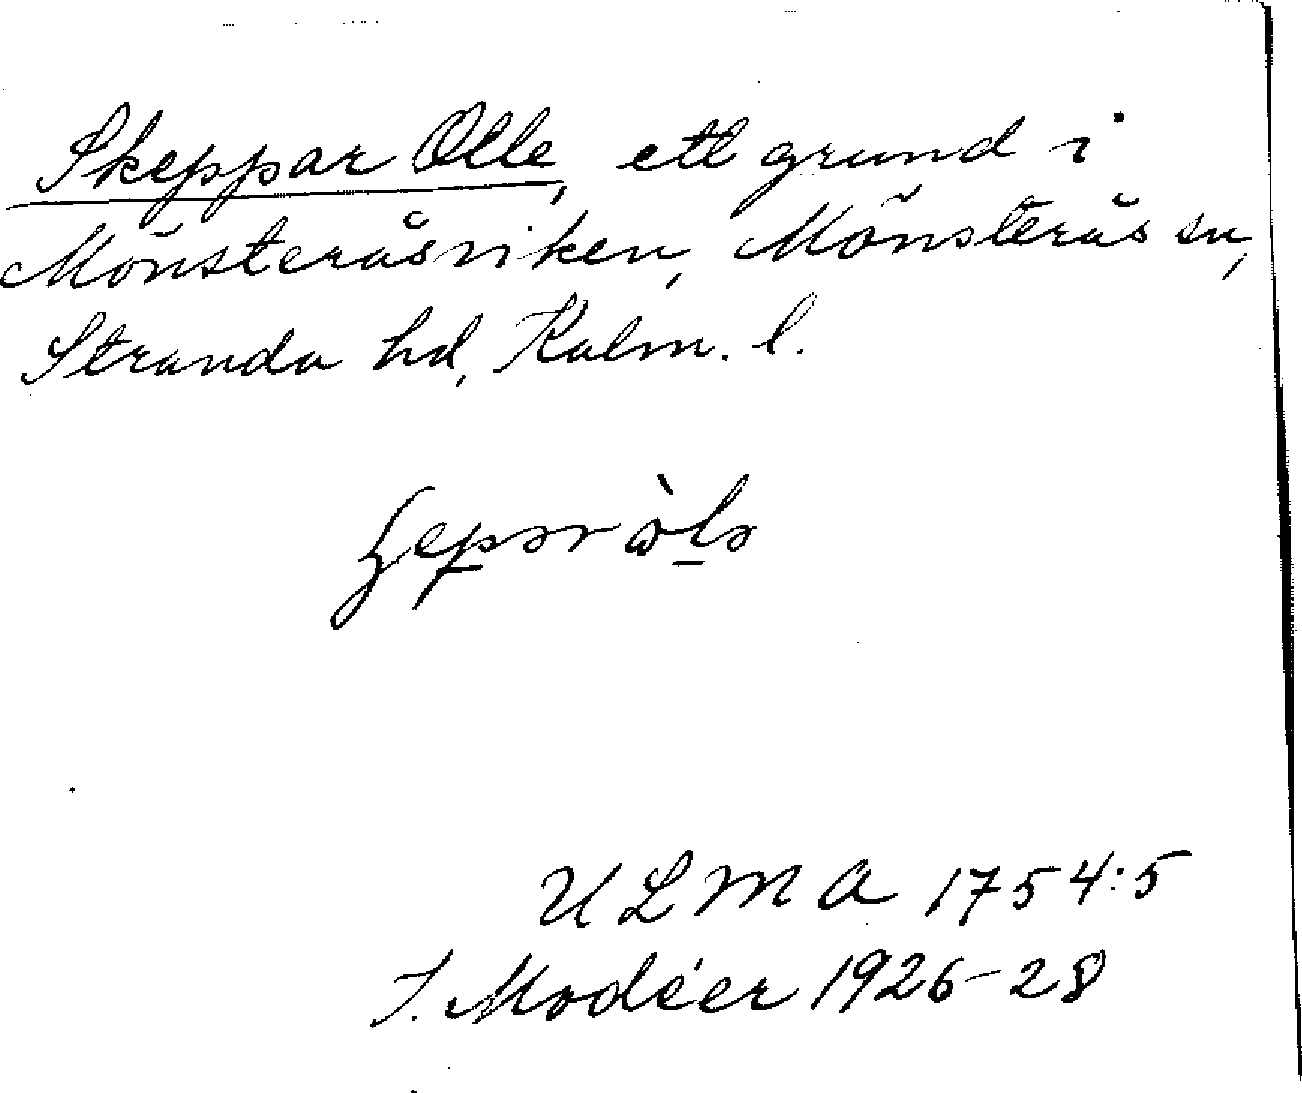 Skeppar Olle, ett grund i
Mönsteråsviken, Mönsterås sn,
Stranda hd, Kalm. l.
ULMA 1754:5
I. Modéer 1926-28